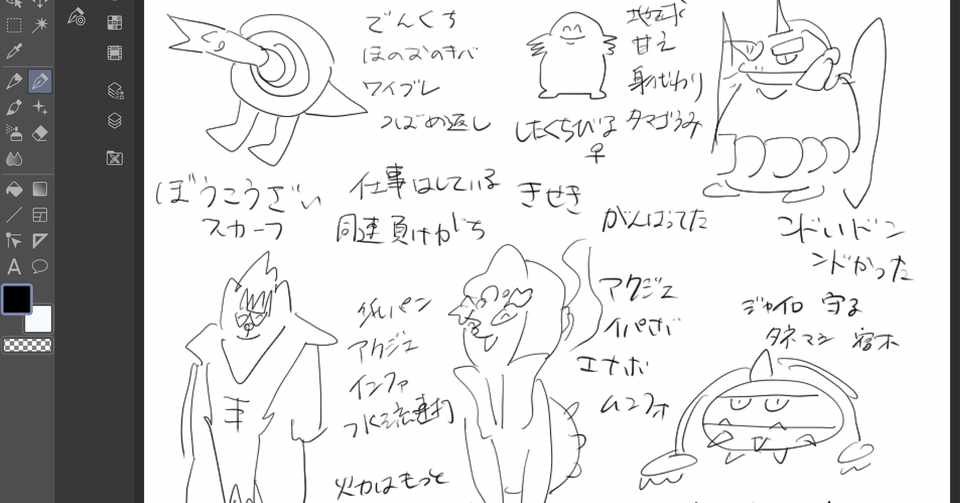 でんくち
ほのおのキバ
ワイブレ
つばめ返し
ぼうこうざい
スカーフ
仕事はしている
同速負けがち
地球
甘え
身代わり
タマゴうみ
したくちびる
♀
きせき
がんばってた
コンドいドン
ンドかった
れいパン
アクジェ
インファ
水流連打
火力はもっと
アクジェ
イバさざ
エナボ
ムンフォ
ジャイロ 守る
タネマシ 宿木
A